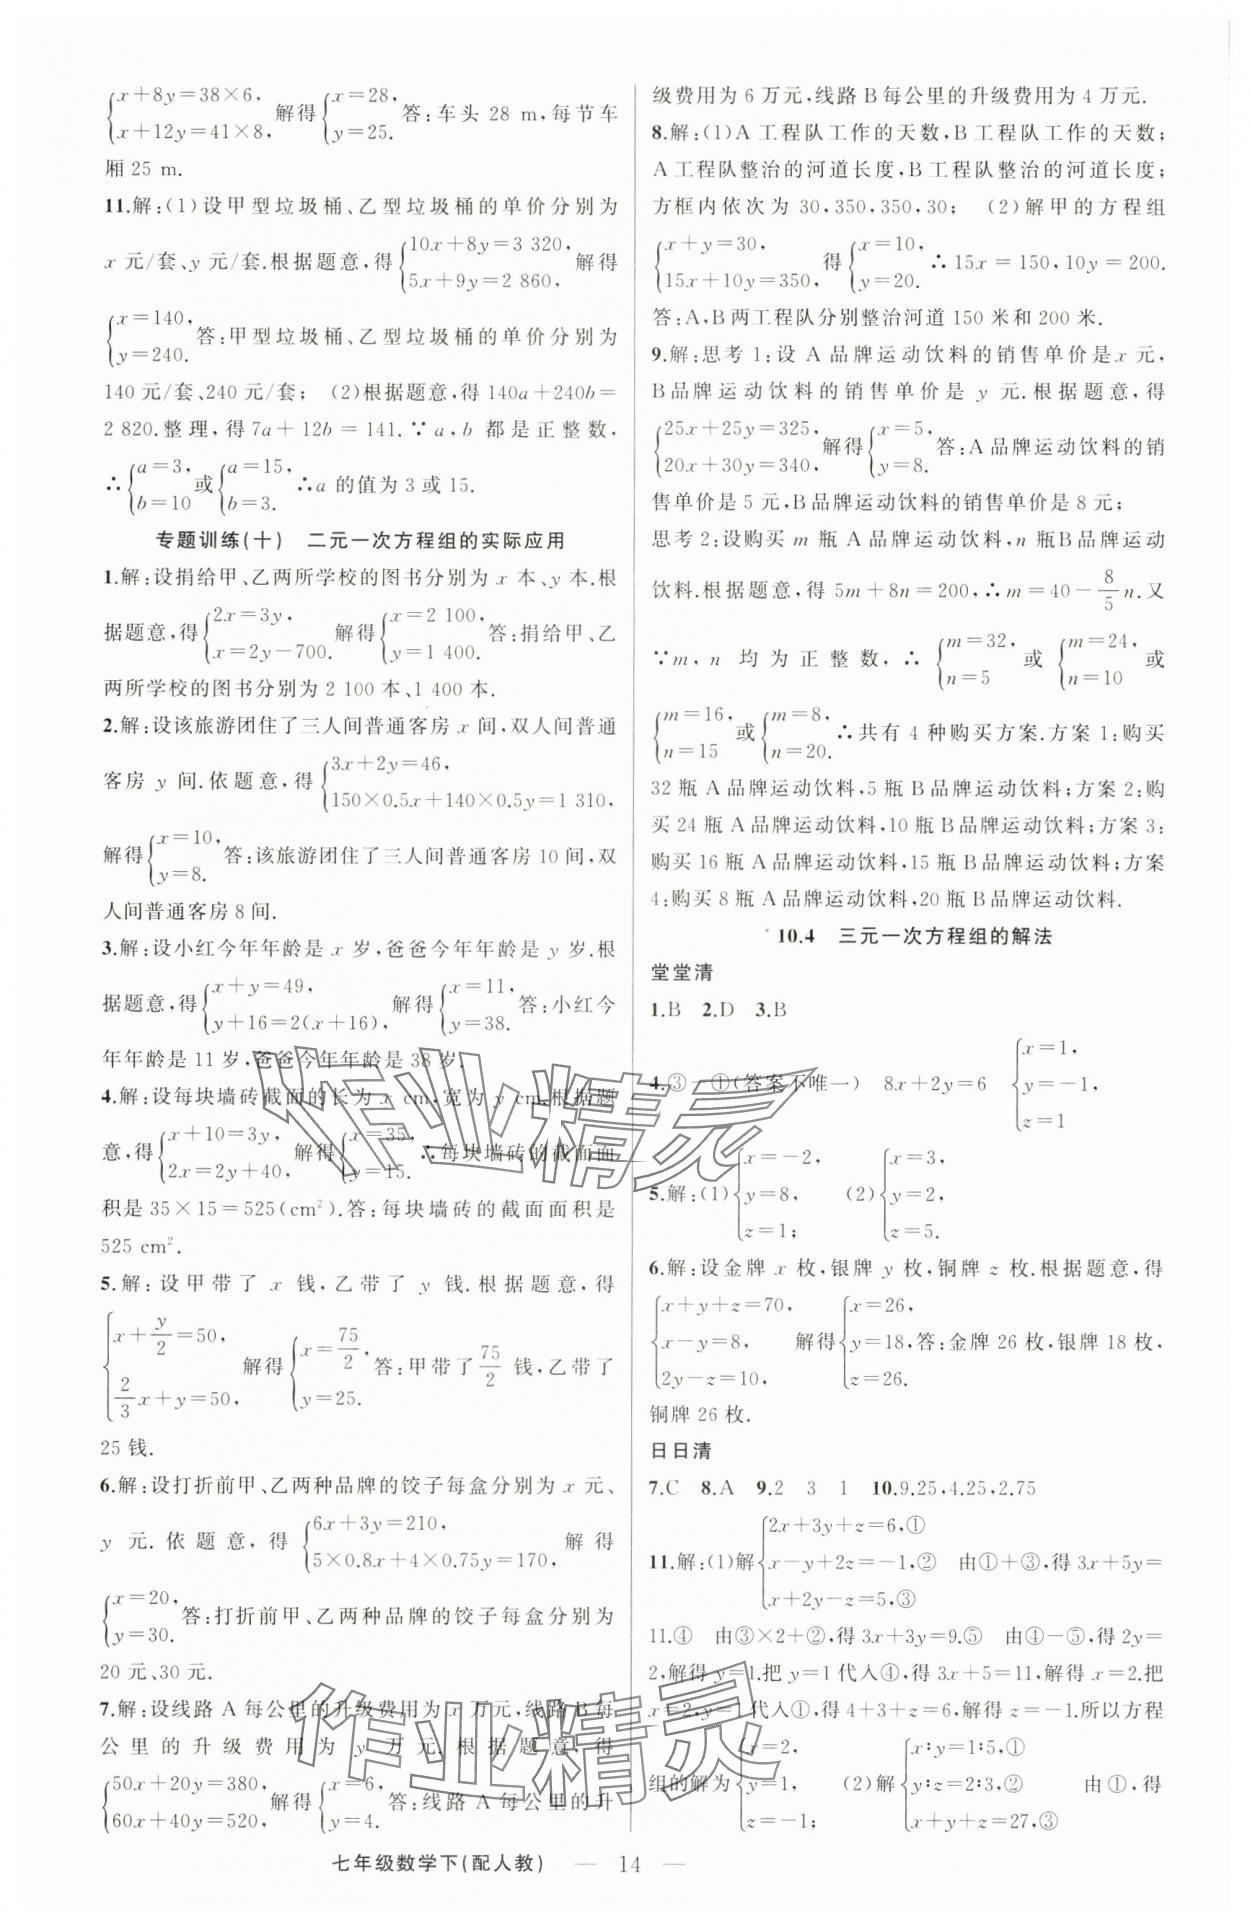 {x+8y=38×6, x+12y=41×8, 解得{x=28, y=25. 答:车头 28 m,每节车
厢 25 m.
11.解:(1)设甲型垃圾桶、乙型垃圾桶的单价分别为
x 元/套、y 元/套.根据题意,得{10x+8y=3 320, 5x+9y=2 860, 解得
{x=140, y=240. 答:甲型垃圾桶、乙型垃圾桶的单价分别为
140 元/套、240 元/套; (2)根据题意,得 140a+240b=
2 820.整理,得 7a+12b=141.∵a,b 都是正整数,
∴{a=3, b=10 或{a=15, b=3. ∴a 的值为 3 或 15.
专题训练(十) 二元一次方程组的实际应用
1.解:设捐给甲、乙两所学校的图书分别为 x 本、y 本.根
据题意,得{2x=3y, x=2y-700. 解得{x=2 100, y=1 400. 答:捐给甲、乙
两所学校的图书分别为 2 100 本、1 400 本.
2.解:设该旅游团住了三人间普通客房 x 间,双人间普通
客房 y 间.依题意,得{3x+2y=46, 150×0.5x+140×0.5y=1 310,
解得{x=10, y=8. 答:该旅游团住了三人间普通客房 10 间,双
人间普通客房 8 间.
3.解:设小红今年年龄是 x 岁,爸爸今年年龄是 y 岁.根
据题意,得{x+y=49, y+16=2(x+16), 解得{x=11, y=38. 答:小红今
年年龄是 11 岁,爸爸今年年龄是 38 岁.
4.解:设每块墙砖截面的长为 x cm,宽为 y cm.根据题
意,得{x+10=3y, 2x=2y+40, 解得{x=35, y=15. ∴每块墙砖的截面面
积是 35×15=525(cm²).答:每块墙砖的截面面积是
525 cm².
5.解:设甲带了 x 钱,乙带了 y 钱.根据题意,得
{x+y/2=50, 2/3x+y=50, 解得{x=75/2, y=25. 答:甲带了75/2钱,乙带了
25 钱.
6.解:设打折前甲、乙两种品牌的饺子每盒分别为 x 元、
y 元.依题意,得{6x+3y=210, 5×0.8x+4×0.75y=170, 解得
{x=20, y=30. 答:打折前甲、乙两种品牌的饺子每盒分别为
20 元、30 元.
7.解:设线路 A 每公里的升级费用为 x 万元,线路 B 每
公里的升级费用为 y 万元.根据题意,得
{50x+20y=380, 60x+40y=520, 解得{x=6, y=4. 答:线路 A 每公里的升
级费用为 6 万元,线路 B 每公里的升级费用为 4 万元.
8.解:(1)A 工程队工作的天数,B 工程队工作的天数;
A 工程队整治的河道长度,B 工程队整治的河道长度;
方框内依次为 30,350,350,30; (2)解甲的方程组
{x+y=30, 15x+10y=350, 得{x=10, y=20. ∴15x=150,10y=200.
答:A,B 两工程队分别整治河道 150 米和 200 米.
9.解:思考 1:设 A 品牌运动饮料的销售单价是 x 元,
B 品牌运动饮料的销售单价是 y 元.根据题意,得
{25x+25y=325, 20x+30y=340, 解得{x=5, y=8. 答:A 品牌运动饮料的销
售单价是 5 元,B 品牌运动饮料的销售单价是 8 元;
思考 2:设购买 m 瓶 A 品牌运动饮料,n 瓶 B 品牌运动
饮料.根据题意,得 5m+8n=200,∴m=40-8/5n.又
∵m,n 均为正整数,∴{m=32, n=5 或{m=24, n=10 或
{m=16, n=15 或{m=8, n=20. ∴共有 4 种购买方案.方案 1:购买
32 瓶 A 品牌运动饮料,5 瓶 B 品牌运动饮料;方案 2:购
买 24 瓶 A 品牌运动饮料,10 瓶 B 品牌运动饮料;方案 3:
购买 16 瓶 A 品牌运动饮料,15 瓶 B 品牌运动饮料;方案
4:购买 8 瓶 A 品牌运动饮料,20 瓶 B 品牌运动饮料.
10.4 三元一次方程组的解法
堂堂清
1.B 2.D 3.B
4.③-①(答案不唯一) 8x+2y=6 {x=1, y=-1, z=1
5.解:(1){x=-2, y=8, z=1; (2){x=3, y=2, z=5.
6.解:设金牌 x 枚,银牌 y 枚,铜牌 z 枚.根据题意,得
{x+y+z=70, x-y=8, 2y-z=10, 解得{x=26, y=18, z=26. 答:金牌 26 枚,银牌 18 枚,
铜牌 26 枚.
日日清
7.C 8.A 9.2 3 1 10.9.25,4.25,2.75
11.解:(1)解{2x+3y+z=6,① x-y+2z=-1,② x+2y-z=5,③ 由①+③,得 3x+5y=
11.④ 由③×2+②,得 3x+3y=9.⑤ 由④-⑤,得 2y=
2,解得 y=1.把 y=1 代入④,得 3x+5=11,解得 x=2.把
x=2,y=1 代入①,得 4+3+z=6,解得 z=-1.所以方程
组的解为{x=2, y=1, z=-1. (2)解{x∶y=1∶5,① y∶z=2∶3,② x+y+z=27,③ 由①,得
七年级数学下(配人教) — 14 —
作业精灵
作业精灵